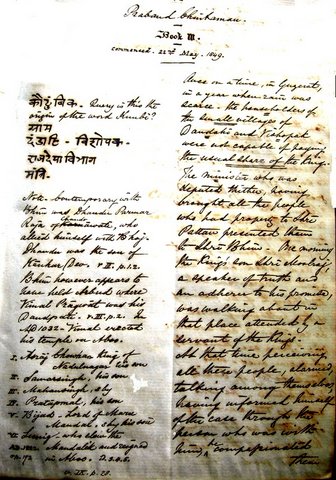 Prabandh Chintamani.
Book III.
commenced. 22nd May. 1849.
कौटुंबिक. Query is this the
origin of the word Kunbi?
ग्राम
दंडाहि - विशोपक.
राजदेयाविभाग
मंत्रि.
Note. Contemporary with
Bhim was Dhandu Parmar
Raja of
allied himself with Bhoj.
Dhandu was the son of
Krishn Dev. v. II. p. 12.
Bhim however appears to
have held Abhoo where
Vimal Pragvat was his
Dandpati. v. II. p. 2. In
AD 1032 - Vimal erected
his temple on Aboo.
I. King of
his son
II. his son
III. Mahansingh, do by
IV. Pentypmal, his son
V. Bijud. Lord of Maroo
Mandal. by his son
VI. who slew the
Mandalik and reigned
in Aboo.
v. IX. p. 28.
Once on a time, in Guzerat,
in a year when rain was
scarce - the householders of
the small village of
Dandahi and
were not capable of paying
the usual share of the King.
The minister who was
deputed thither, having
brought all the people
who had property to Shri
Puttun presented them
to Shri Bhim. One morning
the King's son Shri Moolraj
a speaker of truth and
an adherer to his promise
was walking about in
that place attended by a
servant of the King.
At that time perceiving
all these people, alarmed,
talking among themselves
having informed himself
of the case through the
person who was with
him he compassionated
them